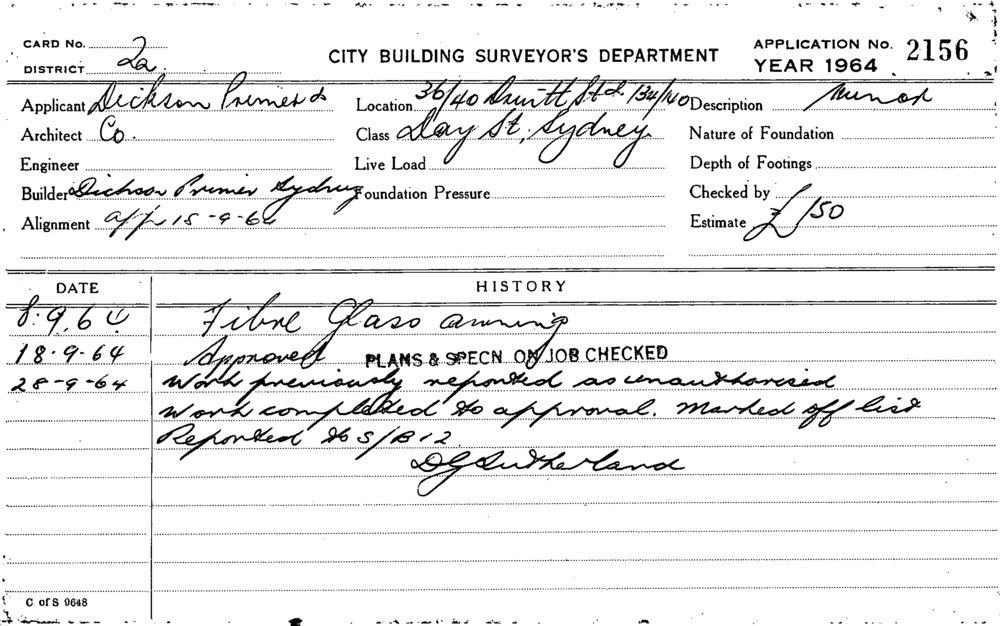 CARD No.
DISTRICT 2a.
CITY BUILDING SURVEYOR'S DEPARTMENT
APPLICATION No. 2156
YEAR 1964
Applicant Dickson Primer &
Location 36/40 Druitt St & 134/140
Description Minor
Architect Co.
Class Day St, Sydney.
Nature of Foundation
Engineer
Live Load
Depth of Footings
Builder Dickson Primer Sydney
Foundation Pressure
Checked by
Alignment app 15-9-64
Estimate £150
DATE HISTORY
8.9.64 Fibre Glass awning
18.9.64 Approved PLANS & SPECN. ON JOB CHECKED
28-9-64 Work previously reported as unauthorised
Work completed to approval. Marked off list
Reported to S/B12
DG Sutherland
C of S 9648